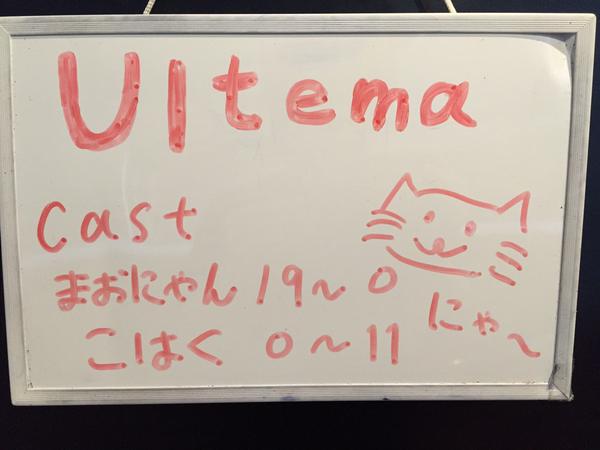 Ultema
cast
まおにゃん 19〜0
こはく 0〜11
にゃ〜